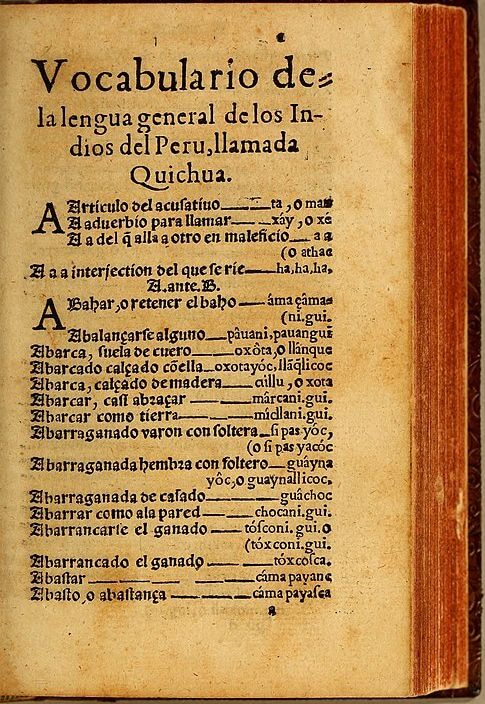 Vocabulario de⸗
la lengua general de los In-
dios del Peru, llamada
Quichua.
A Articulo del acusatiuo——ta, o man
A aduerbio para llamar——xáy, o xé
A a del q̃ alla a otro en maleficio—a a
(o athac
A a a interjection del que se rie——ha, ha, ha.
A. ante. B.
A Bahar, o retener el baho—áma çâma⸗
(ni. gui.
Abalançarse alguno——pâuani, pauangui
Abarca, suela de cuero——oxôta, o llánque
Abarcado calçado cõ ella—oxotayóc, llãqlicoc
Abarca, calçado de madera——cúllu, o xota
Abarcar, casi abraçar——márcani. gui.
Abarcar como tierra——mídlani. gui.
Abarraganado varon con soltera—si pas yóc,
(o si pas yacóc
Abarraganada hembra con soltero—guáyna
yôc, o guaynallicoc.
Abarraganada de casado——guáchoc
Abarrar como a la pared——chocani. gui.
Abarrancarse el ganado——tósconi. gui. o
(tóxconi. gui.
Abarrancado el ganado——tóxcosca.
Abastar————cáma payanc
Abasto, o abastança——cáma payasca
a